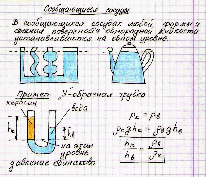 Сообщающиеся сосуды
В сообщающихся сосудах любой формы и
сечения поверхности однородной жидкости
устанавливаются на одном уровне.
Пример: U-образная трубка
керосин
вода
на этом
уровне
давление одинаково
hк
hв
Pк = Pв
ρкghк = ρвghв
hк/hв = ρв/ρк